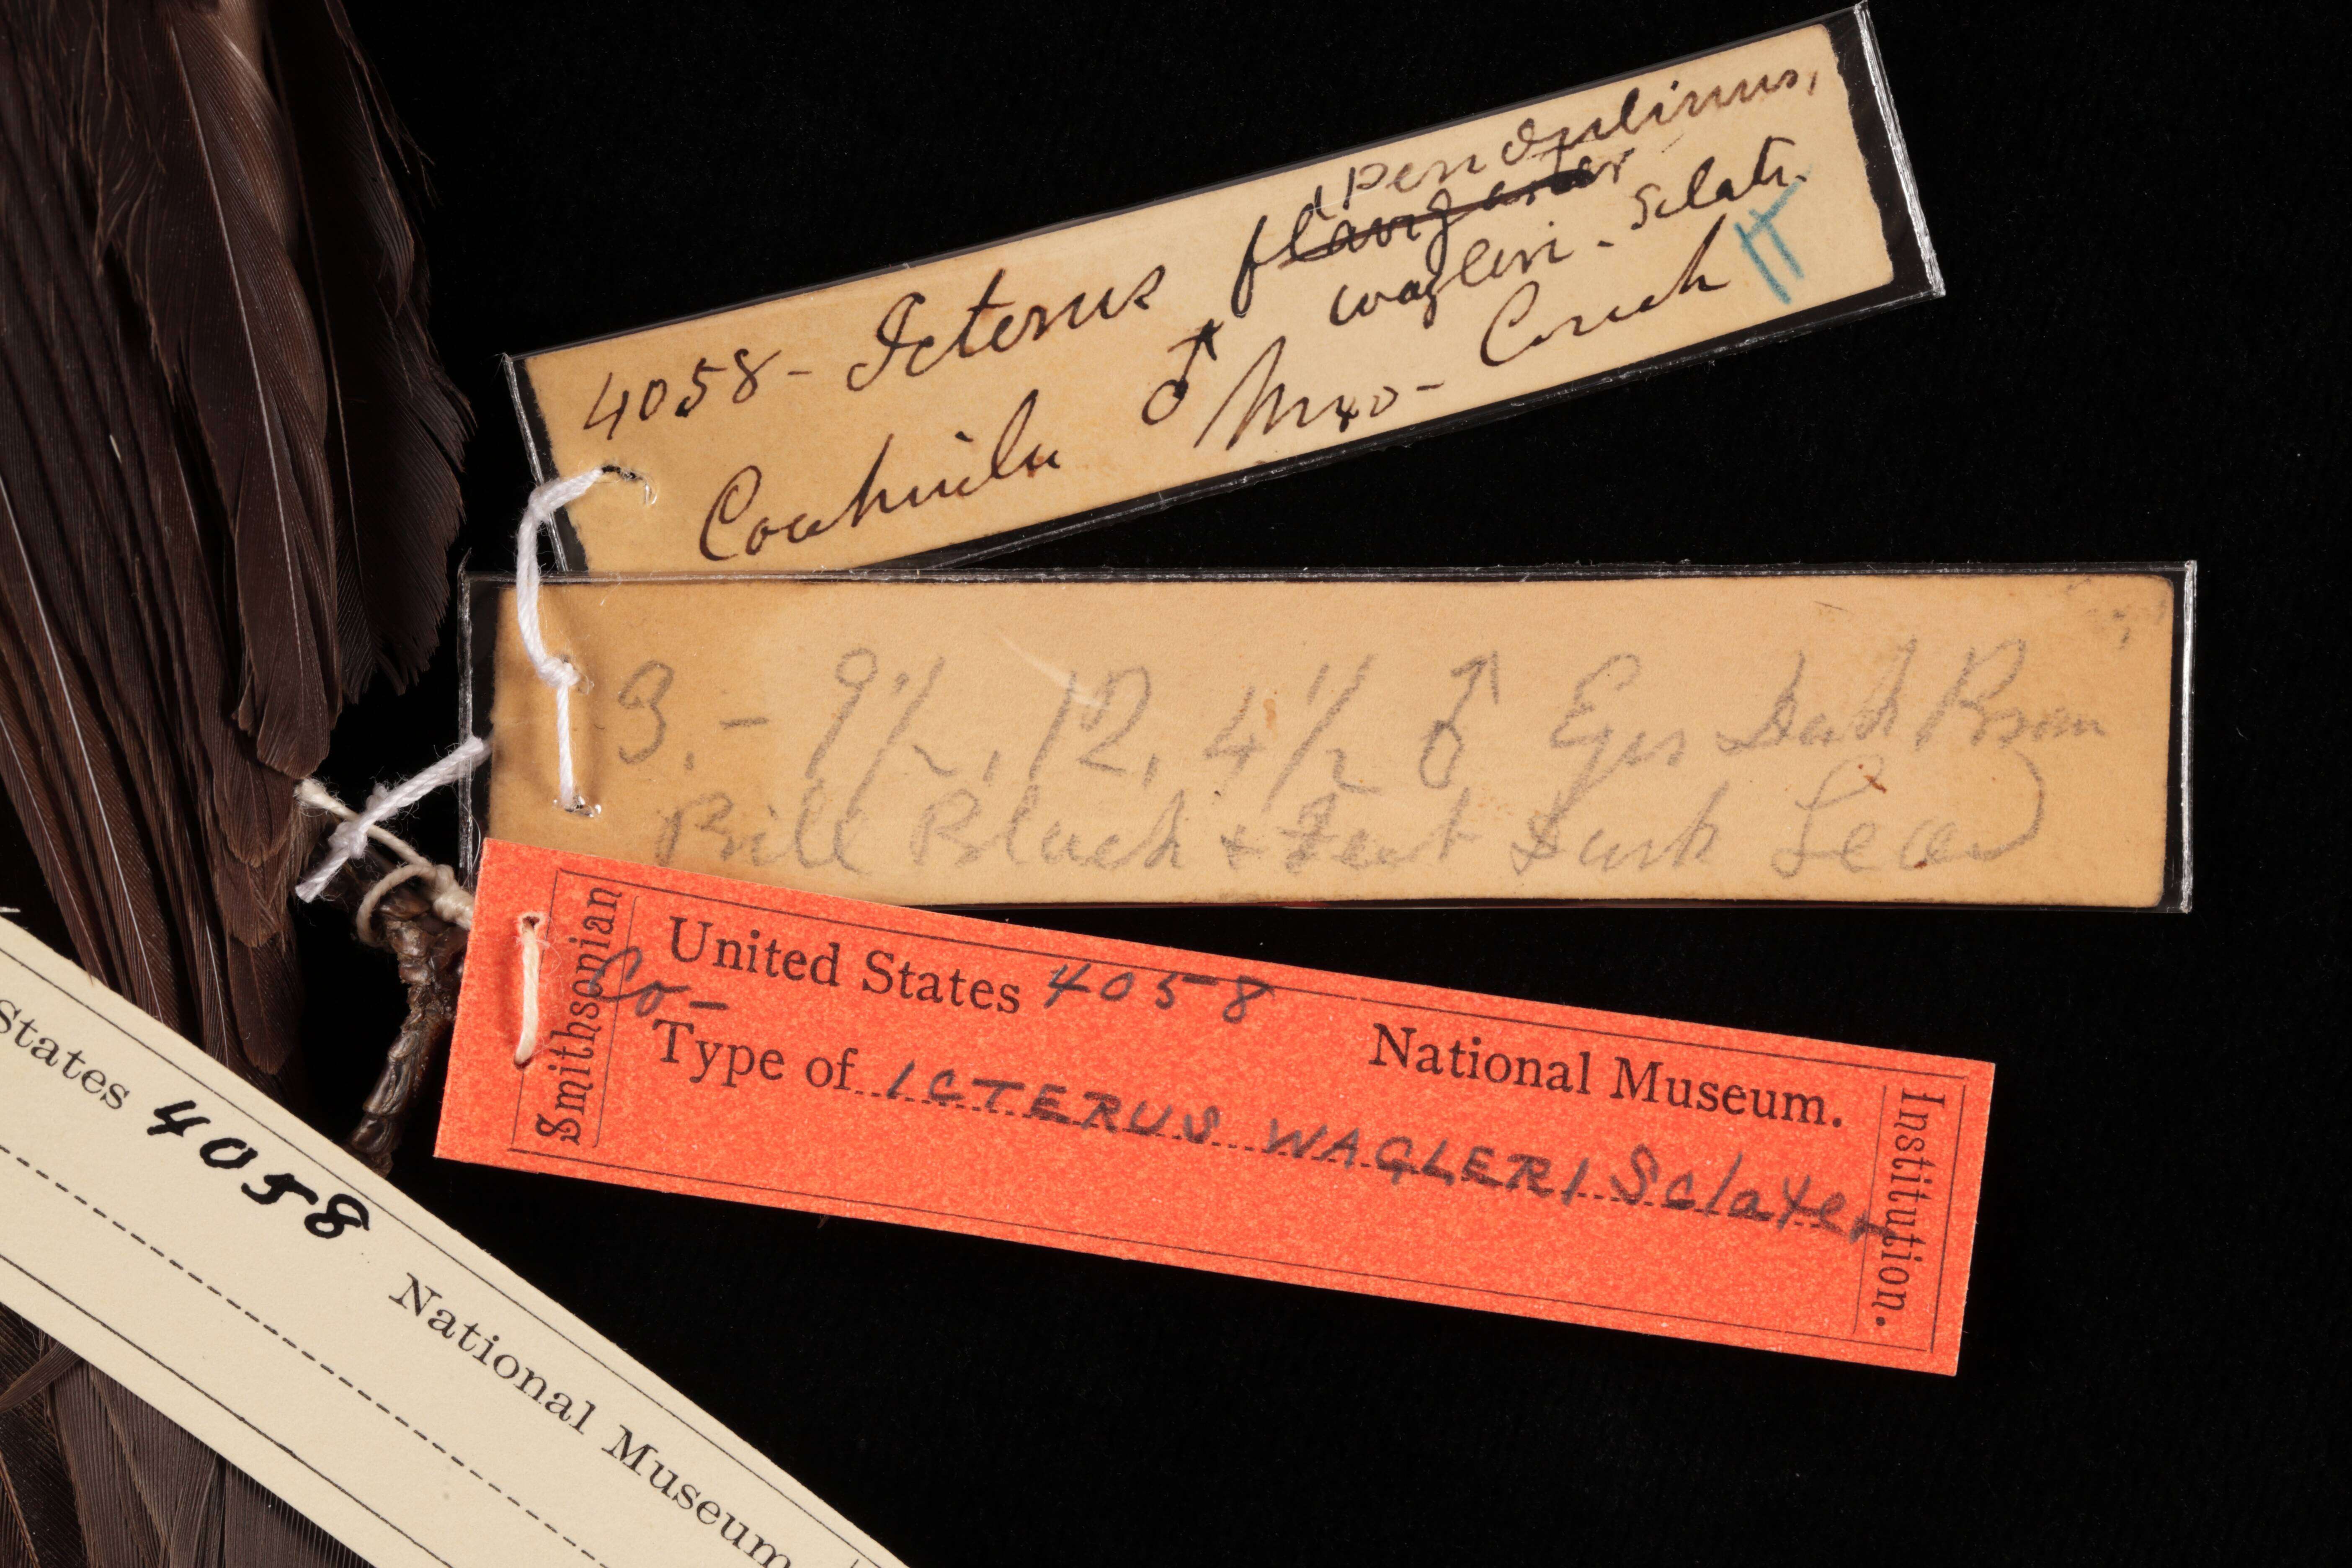 pendulinus,
4058- Icterus flavigaster
wagleri - Sclatr.
Coahuila ♂ Mexo- Couch
3.- 9½, 12, 4½ ♂ Eyes Dark Brown
Bill Black + Feet Dark Lead
Smithsonian
United States 4058 National Museum.
Co-
Type of ICTERUS WAGLERI Sclater
Institution.
States 4058 National Museum